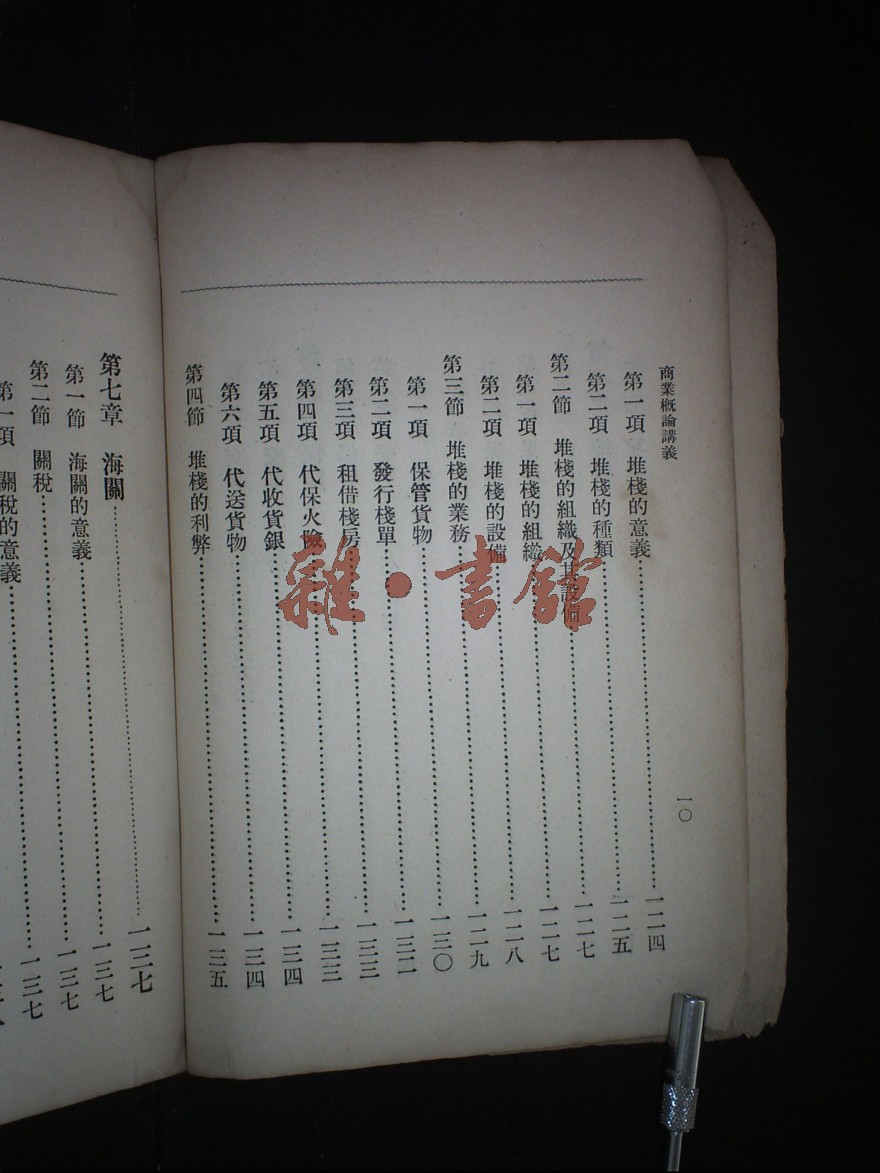 商業概論講義
一〇
第一項 堆棧的意義……一二四
第二項 堆棧的種類……一二五
第二節 堆棧的組織及其設備……一二七
第一項 堆棧的組織……一二七
第二項 堆棧的設備……一二八
第三節 堆棧的業務……一二九
第一項 保管貨物……一三〇
第二項 發行棧單……一三二
第三項 租借棧房……一三三
第四項 代保火險……一三三
第五項 代收貨銀……一三四
第六項 代送貨物……一三四
第四節 堆棧的利弊……一三五
第七章 海關……一三七
第一節 海關的意義……一三七
第二節 關稅……一三七
第一項 關稅的意義
雜·書館